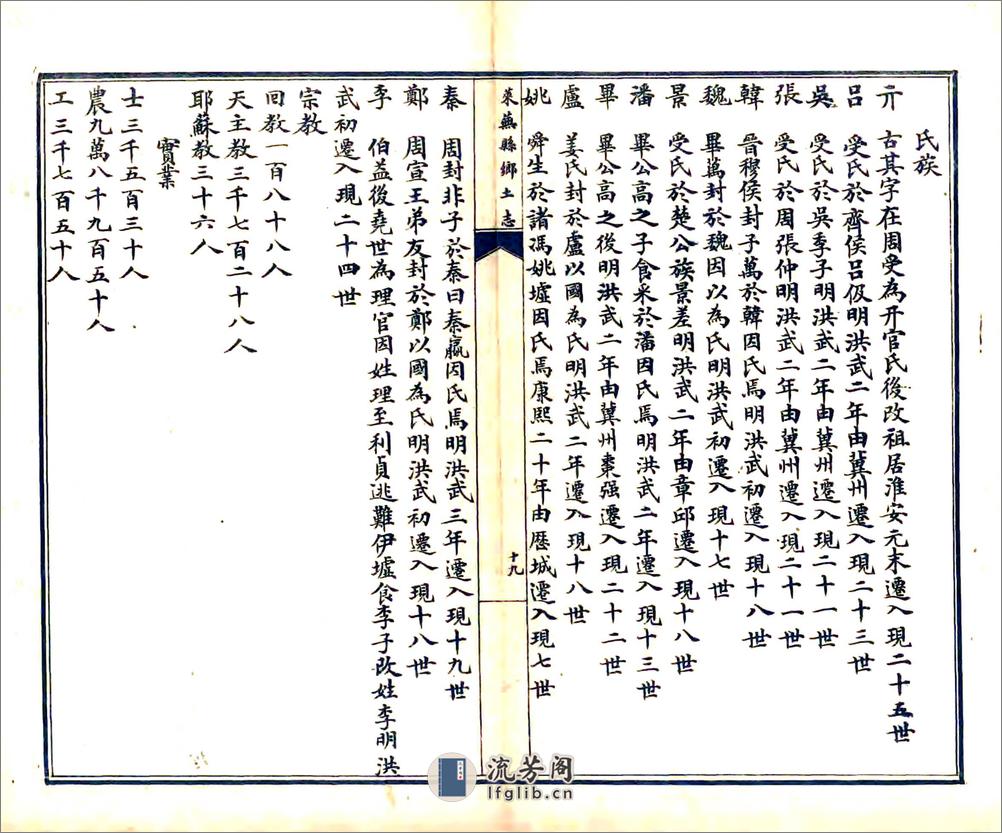 氏族
亓　古其字在周受為亓官氏後改祖居淮安元末遷入現二十五世
呂　受氏於齊侯呂伋明洪武二年由冀州遷入現二十三世
吳　受氏於吳季子明洪武二年由冀州遷入現二十一世
張　受氏於周張仲明洪武二年由冀州遷入現二十一世
韓　晉穆侯封子萬於韓因氏焉明洪武初遷入現十八世
魏　畢萬封於魏因以為氏明洪武初遷入現十七世
景　受氏於楚公族景差明洪武二年由章邱遷入現十八世
潘　畢公高之子食采於潘因氏焉明洪武二年遷入現十三世
畢　畢公高之後明洪武二年由冀州棗强遷入現二十二世
盧　姜氏封於盧以國為氏明洪武二年遷入現十八世
姚　舜生於諸馮姚墟因氏焉康熙二十年由歷城遷入現七世
萊蕪縣鄉土志
十九
秦　周封非子於秦曰秦嬴因氏焉明洪武三年遷入現十九世
鄭　周宣王弟友封於鄭以國為氏明洪武初遷入現十八世
李　伯益後堯世為理官因姓理至利貞逃難伊墟食李子改姓李明洪
武初遷入現二十四世
宗教
回教一百八十八人
天主教三千七百二十八人
耶蘇教三十六人
實業
士三千五百三十人
農九萬八千九百五十人
工三千七百五十人
流芳阁
lfglib.cn